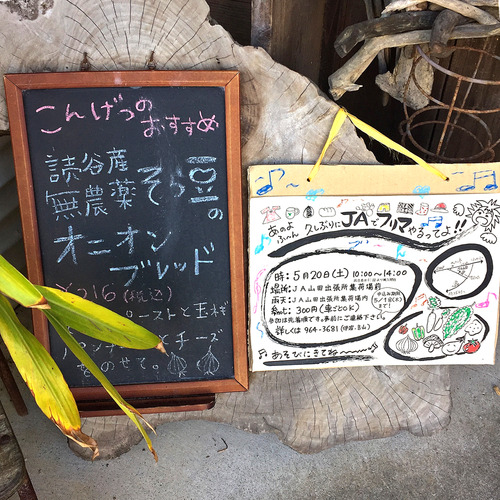 こんげつの
おすすめ
読谷産
無農薬そら豆の
オニオン
ブレッド
¥216(税込)
ーストと玉ネギ
チーズ
をのせて。
あのよ
ふ〜ん
久しぶりにJAでフリマやるってよ!!
時:5月20日(土)10:00〜14:00
場所:JA山田出張所集荷場前
雨天:JA山田出張所集荷場内
申込み締切
5/19(木)まで
参加は先着順です。事前にご連絡下さい。
詳しくは 964-3681
あそびにきてね〜